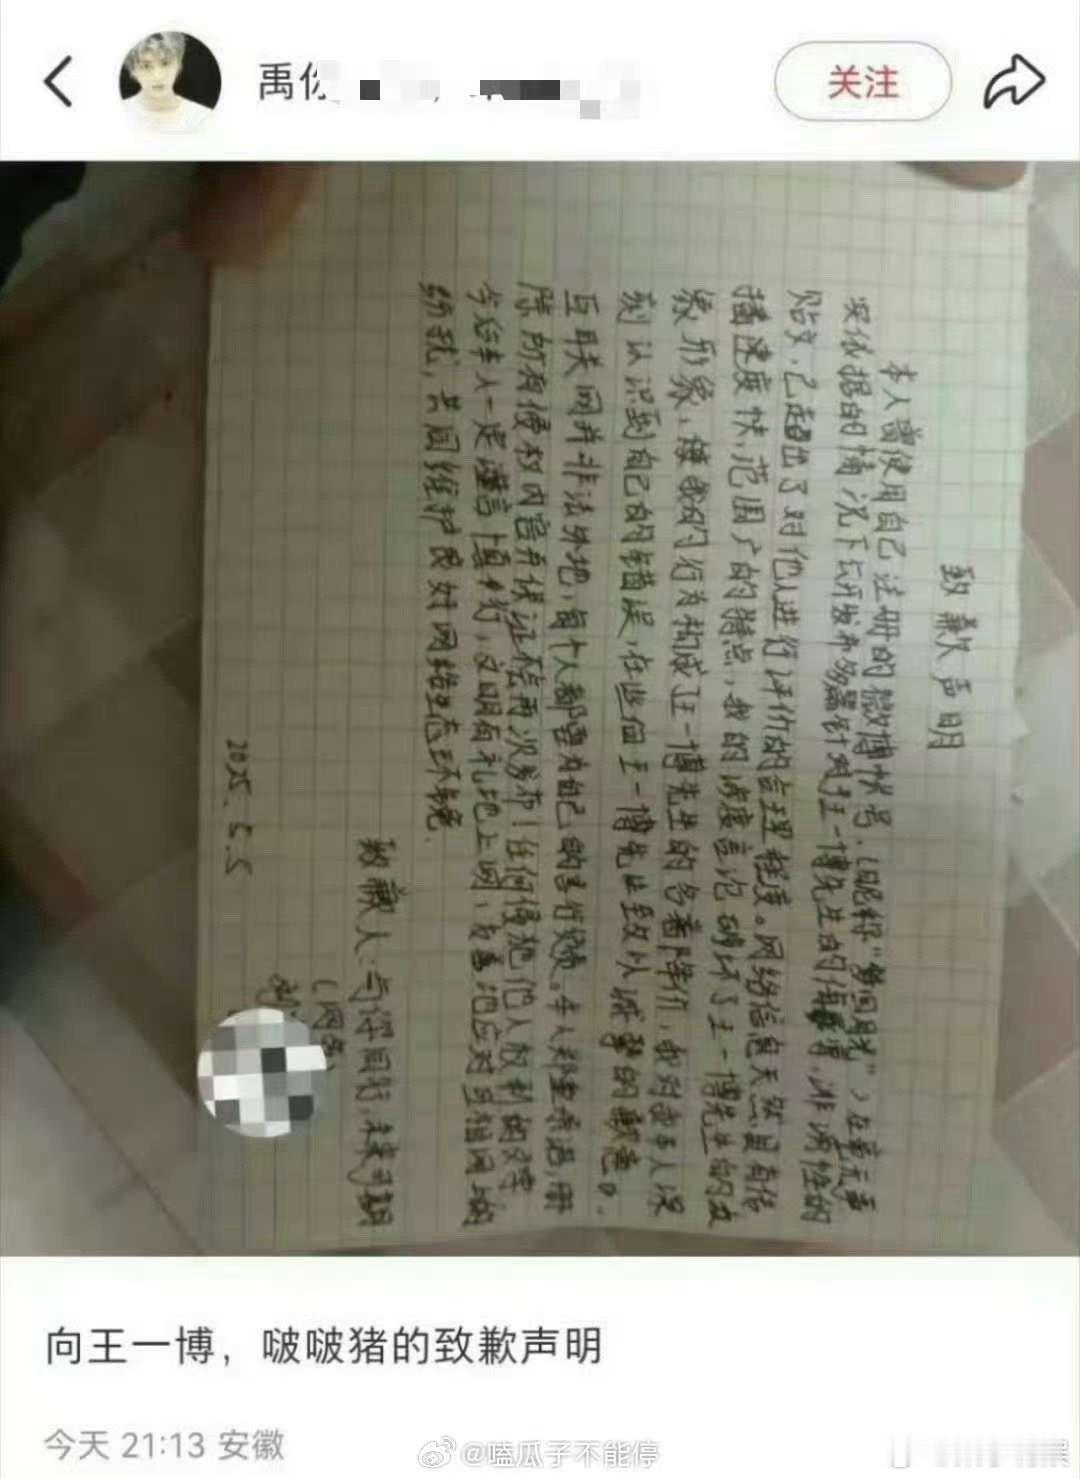 禹你
关注
致歉声明
本人曾使用自己注册的微博账号.(昵称“梦回月光”)在毫无事
实依据的情况下公开发布多篇针对王一博先生的侮辱,诽谤性的
贴文,已超出了对他人进行评价的合理程度。网络信息天然具有传
播速度快,范围广的特点,我的涉案言论破坏了王一博先生的公
众形象,
的行为构成王一博先生的名誉降低,我对此本人深
刻认识到自己的错误,在此向王一博先生致以诚挚的歉意。
互联网并非法外地,每个人都要为自己的言行负责。本人郑重承诺,删
除所有侵权内容并保证不会再次发布!任何侵犯他人权利的文字
今后本人一定谨言慎行,文明有礼地上网,友善地应对互联网上的
纷扰,共同维护良好网络生态环境.
致歉人:与你同行,未来可期
(网名)
2025.5.5
向王一博，啵啵猪的致歉声明
今天 21:13 安徽
@嗑瓜子不能停